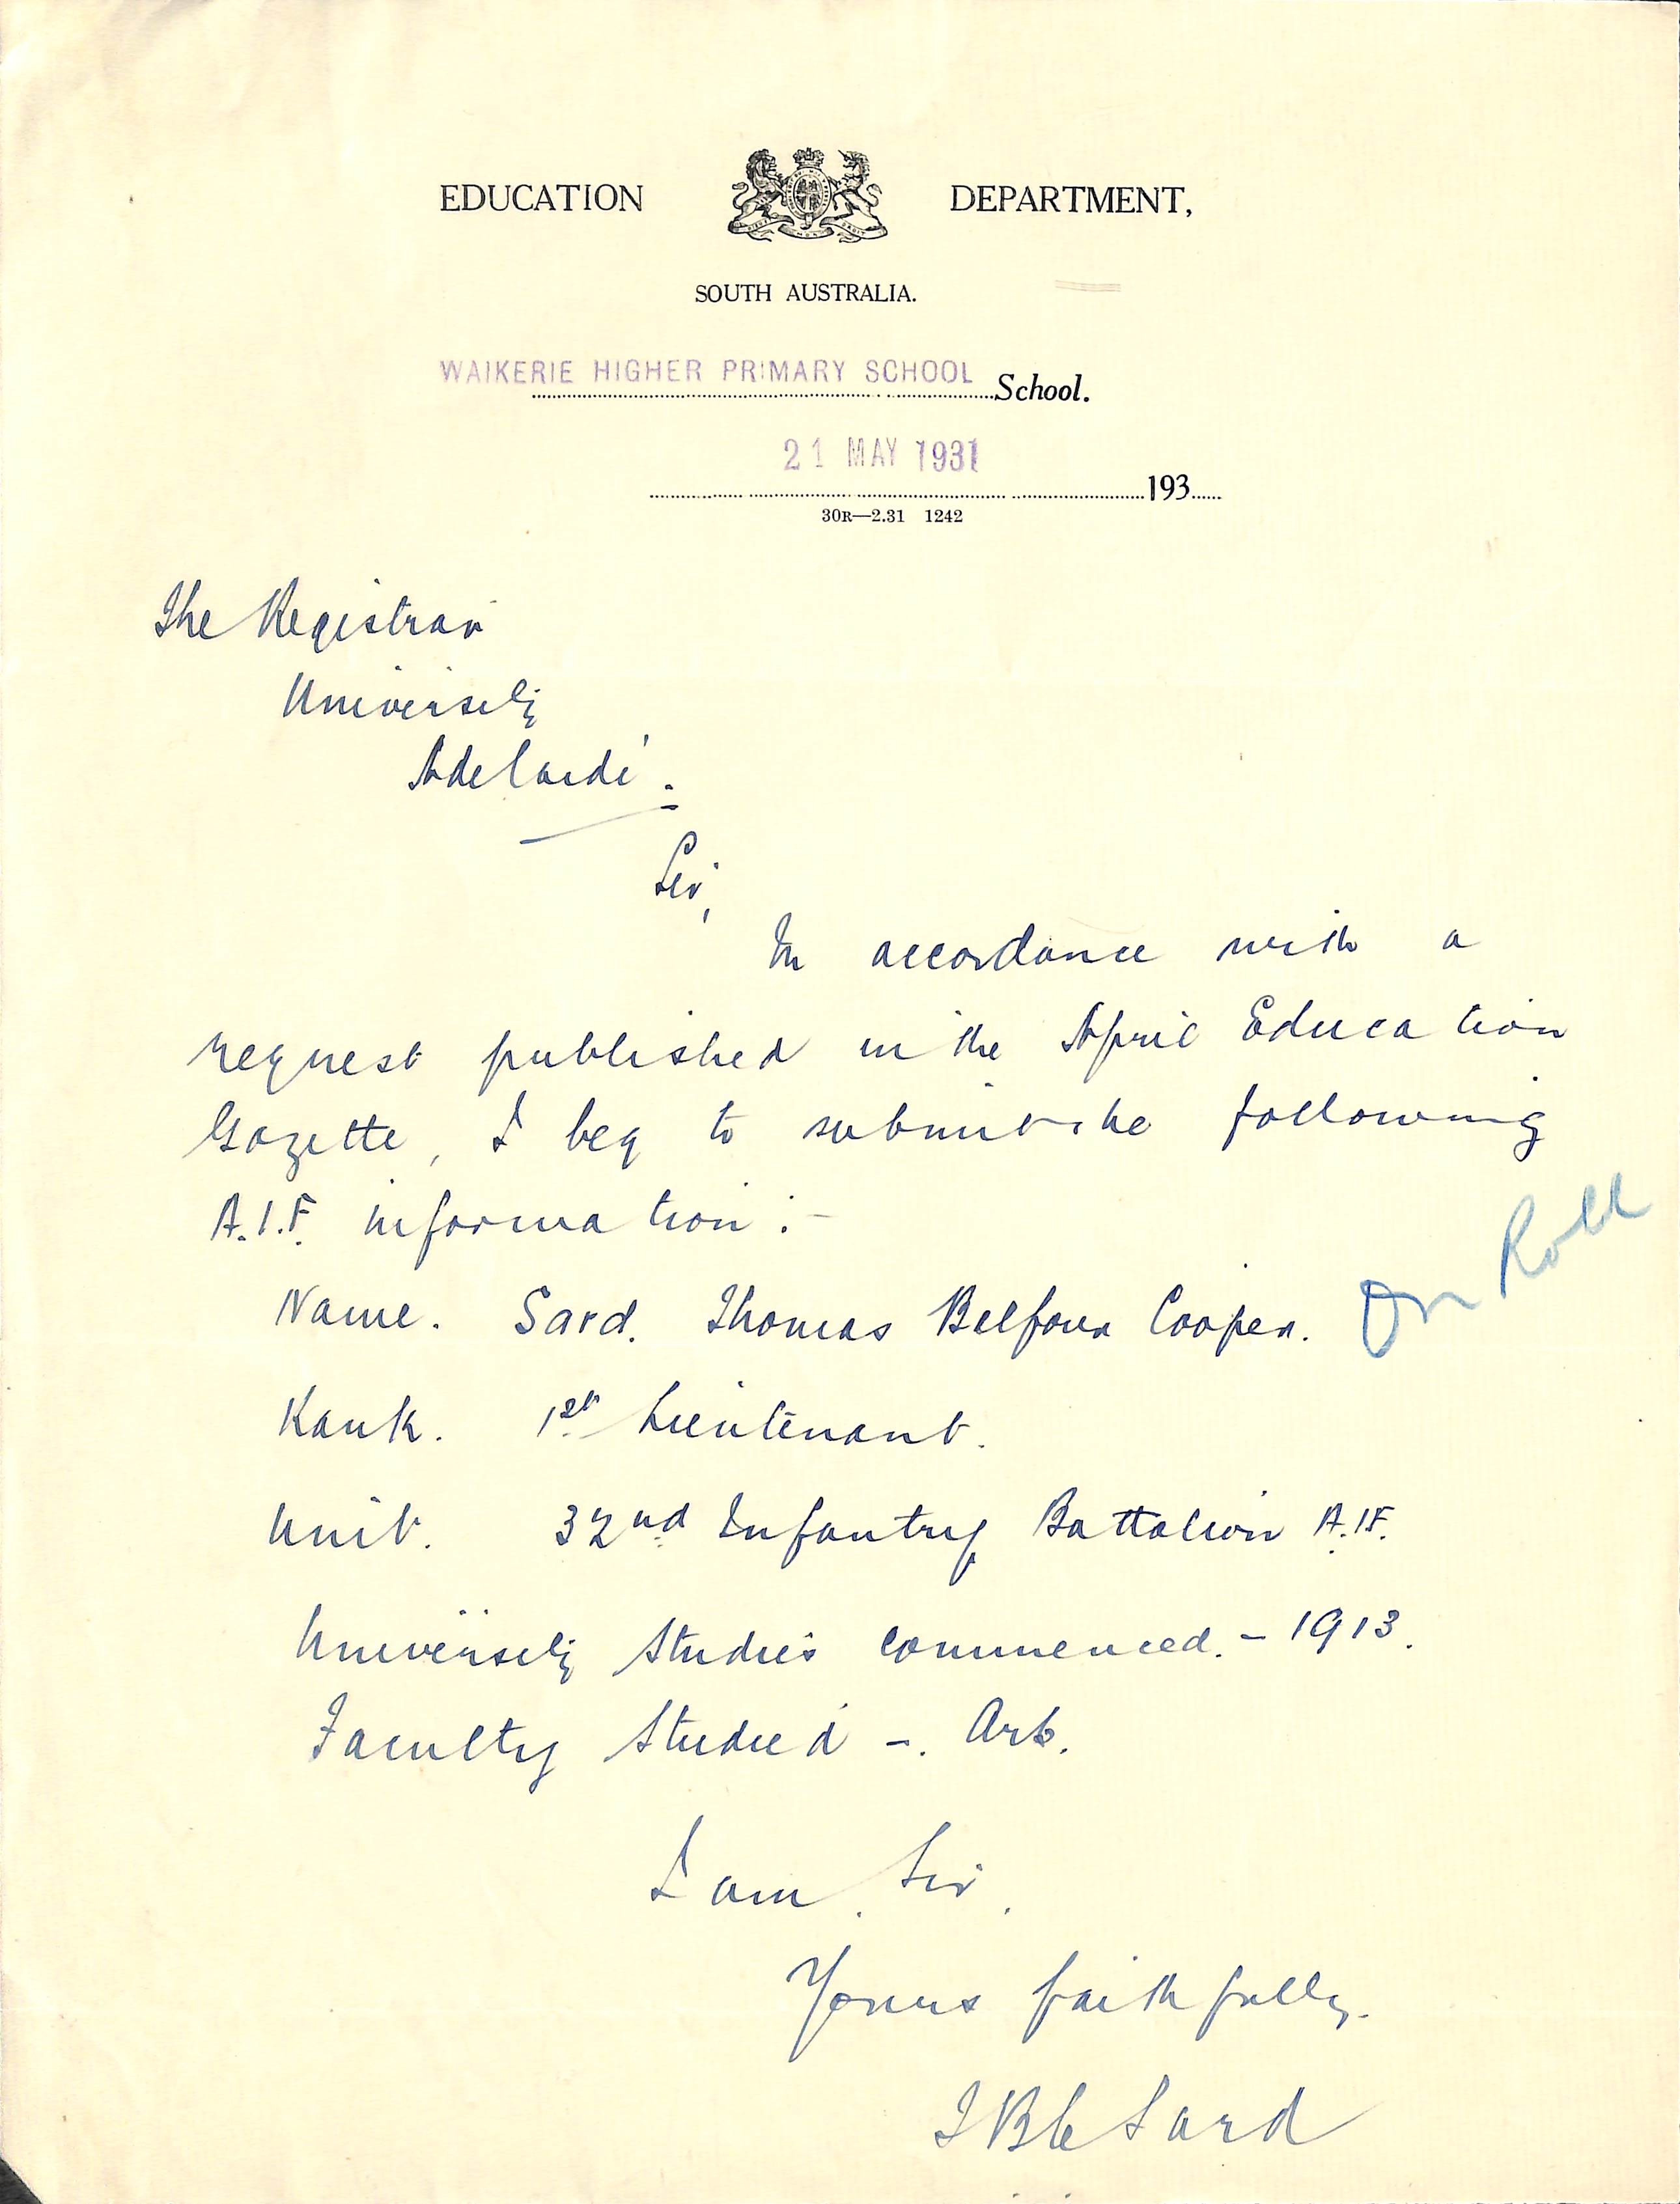 EDUCATION DEPARTMENT,
SOUTH AUSTRALIA.
WAIKERIE HIGHER PRIMARY SCHOOL School.
21 MAY 1931
193
30R—2.31 1242
The Registrar
University
Adelaide.
Sir,
In accordance with a
request published in the April Education
Gazette, I beg to submit the following
A.I.F. information :-
Name. Sard. Thomas Belfour Cooper. On Roll
Rank. 1st Lieutenant.
Unit. 32nd Infantry Battalion A.I.F.
University Studies commenced. - 1913.
Faculty Studied -. Arts.
I am, Sir,
Yours faithfully.
T B C Sard